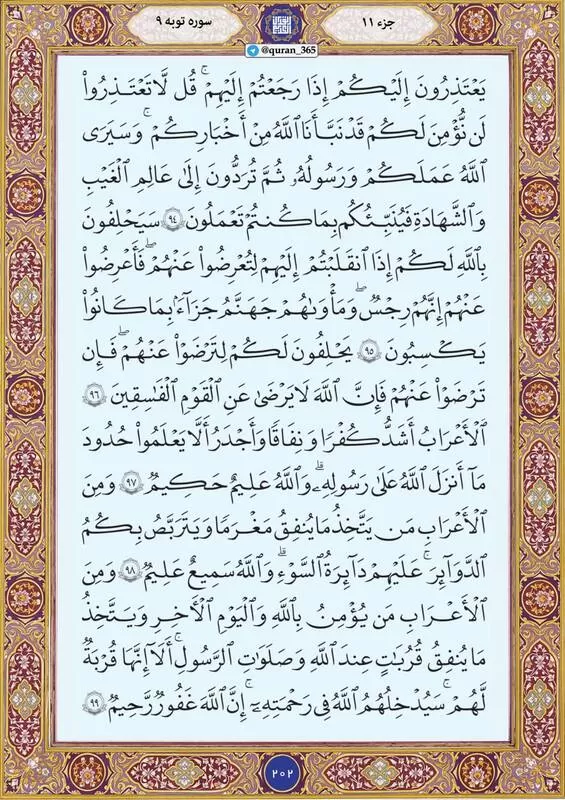 جزء ۱۱
سوره توبه ۹
@quran_365
يَعْتَذِرُونَ إِلَيْكُمْ إِذَا رَجَعْتُمْ إِلَيْهِمْ ۚ قُل لَّا تَعْتَذِرُوا۟
لَن نُّؤْمِنَ لَكُمْ قَدْ نَبَّأَنَا ٱللَّهُ مِنْ أَخْبَارِكُمْ ۚ وَسَيَرَى
ٱللَّهُ عَمَلَكُمْ وَرَسُولُهُۥ ثُمَّ تُرَدُّونَ إِلَىٰ عَالِمِ ٱلْغَيْبِ
وَٱلشَّهَادَةِ فَيُنَبِّئُكُم بِمَا كُنتُمْ تَعْمَلُونَ ۝٩٤ سَيَحْلِفُونَ
بِٱللَّهِ لَكُمْ إِذَا ٱنقَلَبْتُمْ إِلَيْهِمْ لِتُعْرِضُوا۟ عَنْهُمْ ۖ فَأَعْرِضُوا۟
عَنْهُمْ ۖ إِنَّهُمْ رِجْسٌ ۖ وَمَأْوَىٰهُمْ جَهَنَّمُ جَزَآءًۢ بِمَا كَانُوا۟
يَكْسِبُونَ ۝٩٥ يَحْلِفُونَ لَكُمْ لِتَرْضَوْا۟ عَنْهُمْ ۖ فَإِن
تَرْضَوْا۟ عَنْهُمْ فَإِنَّ ٱللَّهَ لَا يَرْضَىٰ عَنِ ٱلْقَوْمِ ٱلْفَاسِقِينَ ۝٩٦
ٱلْأَعْرَابُ أَشَدُّ كُفْرًا وَنِفَاقًا وَأَجْدَرُ أَلَّا يَعْلَمُوا۟ حُدُودَ
مَآ أَنزَلَ ٱللَّهُ عَلَىٰ رَسُولِهِۦ ۗ وَٱللَّهُ عَلِيمٌ حَكِيمٌ ۝٩٧ وَمِنَ
ٱلْأَعْرَابِ مَن يَتَّخِذُ مَا يُنفِقُ مَغْرَمًا وَيَتَرَبَّصُ بِكُمُ
ٱلدَّوَآئِرَ ۚ عَلَيْهِمْ دَآئِرَةُ ٱلسَّوْءِ ۗ وَٱللَّهُ سَمِيعٌ عَلِيمٌ ۝٩٨ وَمِنَ
ٱلْأَعْرَابِ مَن يُؤْمِنُ بِٱللَّهِ وَٱلْيَوْمِ ٱلْأَخِرِ وَيَتَّخِذُ
مَا يُنفِقُ قُرُبَاتٍ عِندَ ٱللَّهِ وَصَلَوَاتِ ٱلرَّسُولِ ۚ أَلَآ إِنَّهَا قُرْبَةٌ
لَّهُمْ ۚ سَيُدْخِلُهُمُ ٱللَّهُ فِى رَحْمَتِهِۦٓ ۗ إِنَّ ٱللَّهَ غَفُورٌ رَّحِيمٌ ۝٩٩
۲۰۲